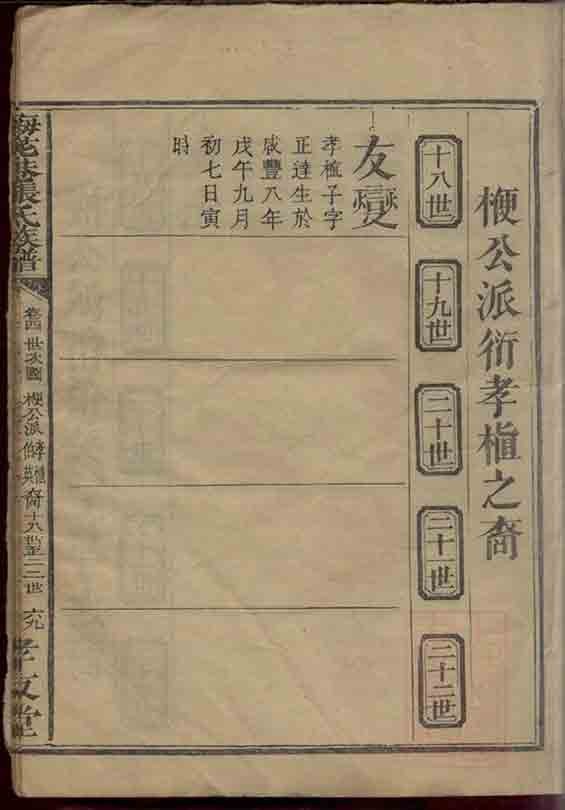 楩公派衍孝植之裔
十八世
十九世
二十世
二十一世
二十二世
友變
孝植子字
正達生於
咸豐八年
戊午九月
初七日寅
時
張氏族譜
卷四 世次圖
楩公派
裔十八世至二二世
六九
孝友堂